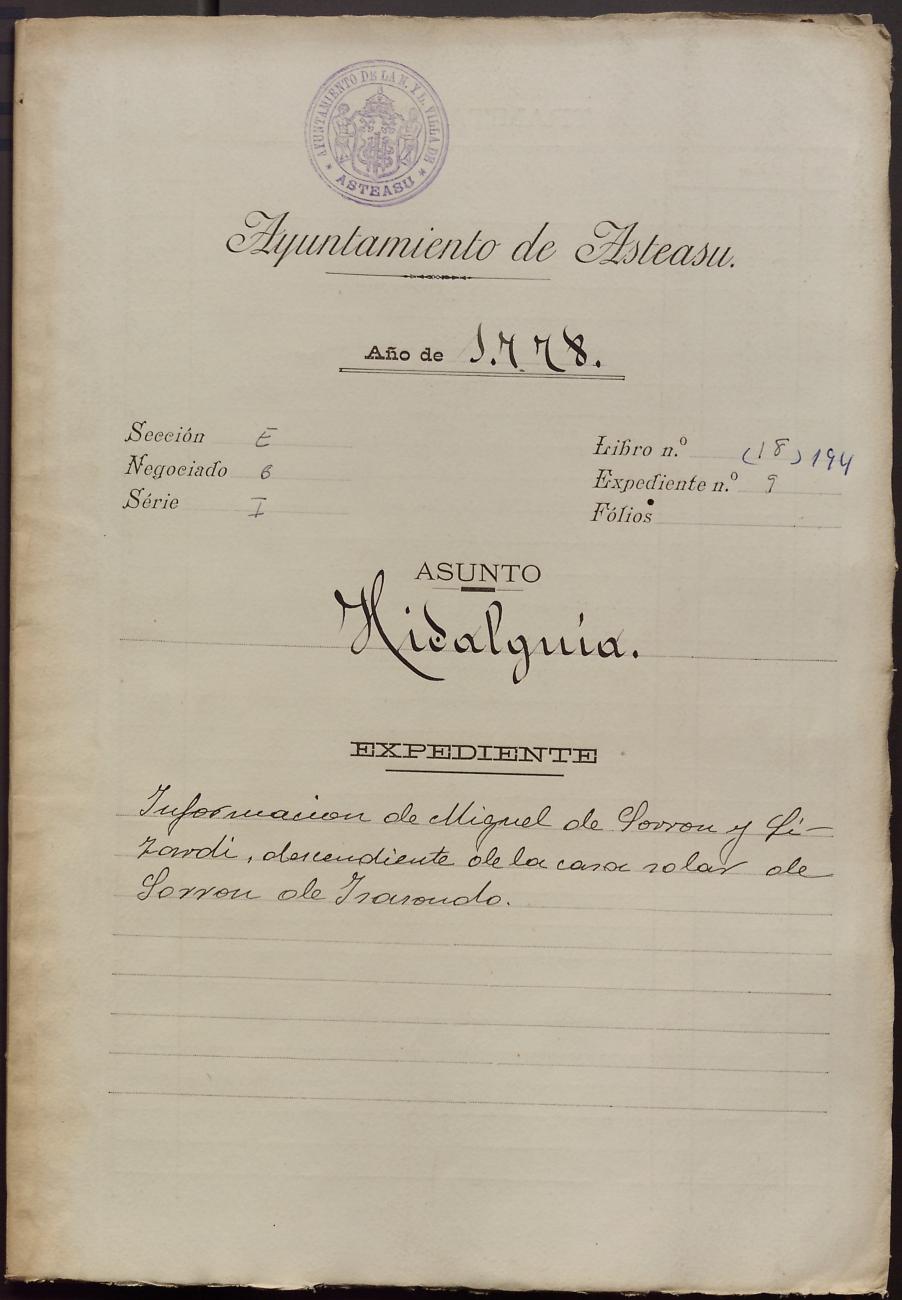 AYUNTAMIENTO DE LA N. Y L. VILLA DE
* ASTEASU *
Ayuntamiento de Asteasu.
Año de 1.778.
Sección E
Negociado 6
Série I
Libro n.º (18) 194
Expediente n.º 9
Fólios
ASUNTO
Hidalguia.
EXPEDIENTE
Informacion de Miguel de Sorron y Li-
zardi, descendiente de la casa solar de
Sorron de Isasondo.